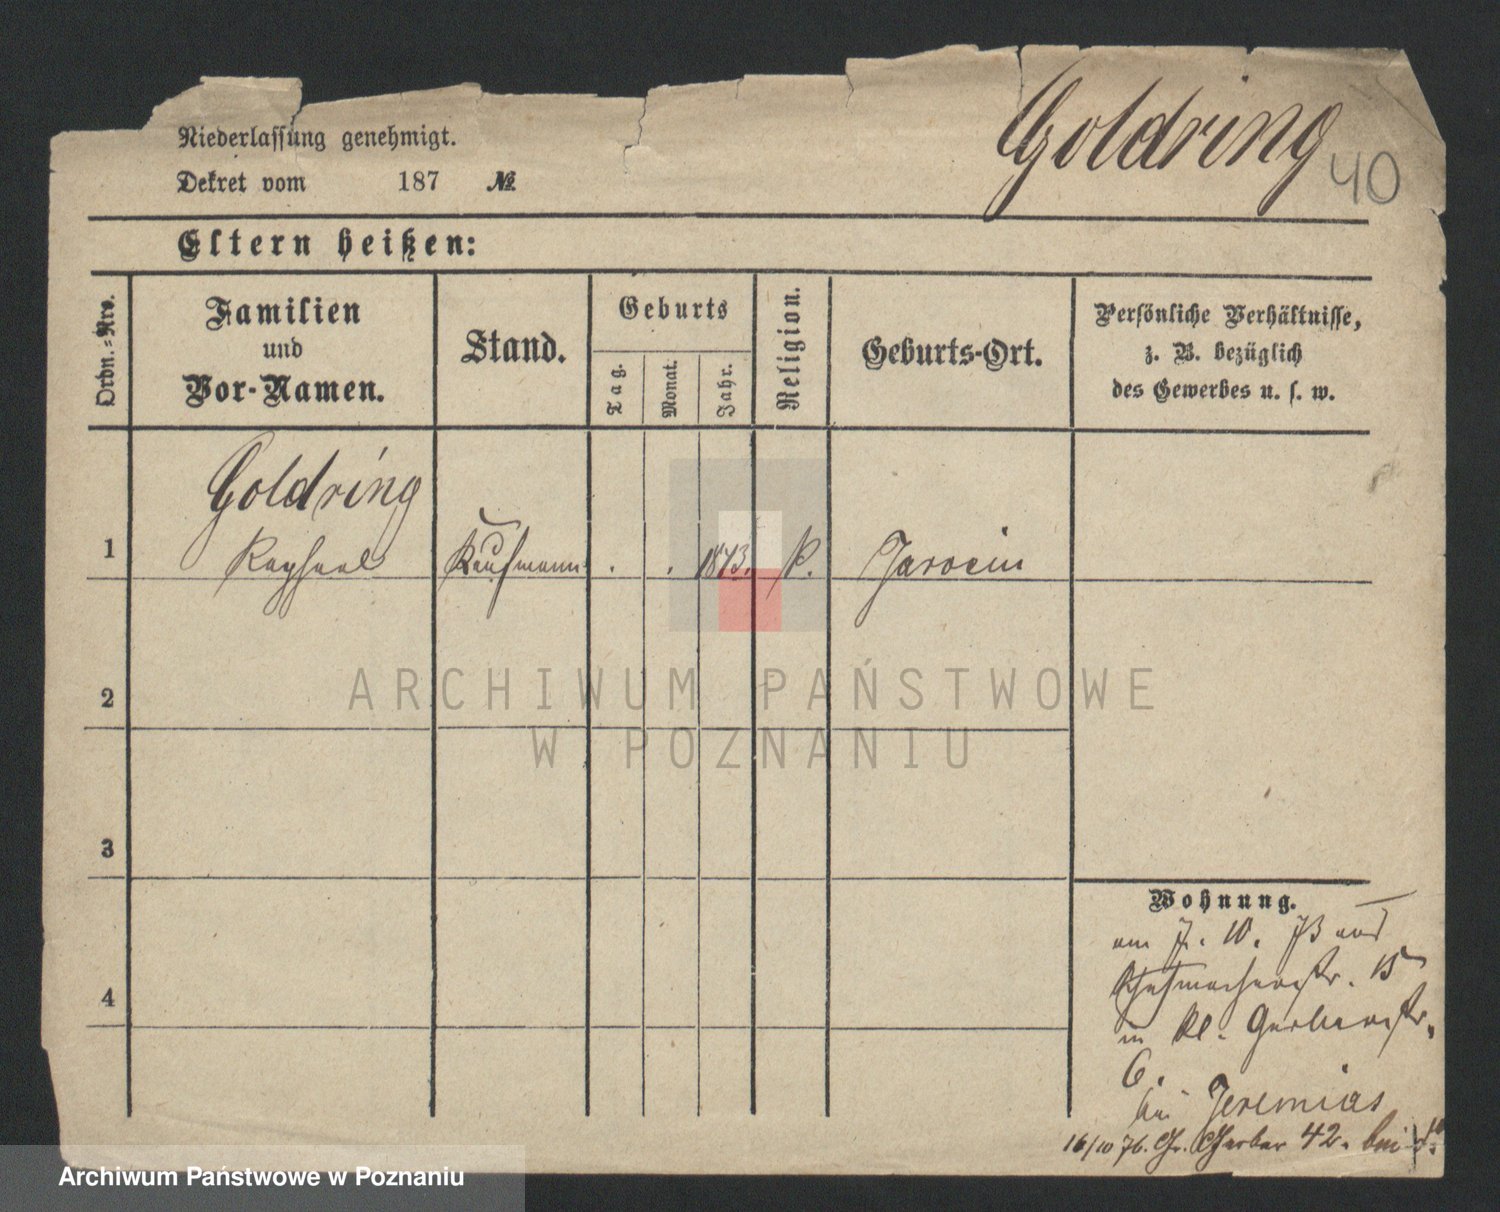 Goldring
40
Niederlassung genehmigt.
Dekret vom 187 №
Eltern heißen:
Ordn.-Nro.
Familien
und
Vor-Namen.
Stand.
Geburts
Tag.
Monat.
Jahr.
Religion.
Geburts-Ort.
Persönliche Verhältnisse,
z. B. bezüglich
des Gewerbes u. s. w.
Goldring
1 Raphael Kaufmann . . 1873. Jarocin
2
3
4
Wohnung.
am 7. 10. 73 aus
Schuhmacherstr. 15
in Kl. Gerberstr.
6.
bei Jeremias
16/10 76. Gr. Gerber 42. bei
ARCHIWUM PAŃSTWOWE
W POZNANIU
Archiwum Państwowe w Poznaniu